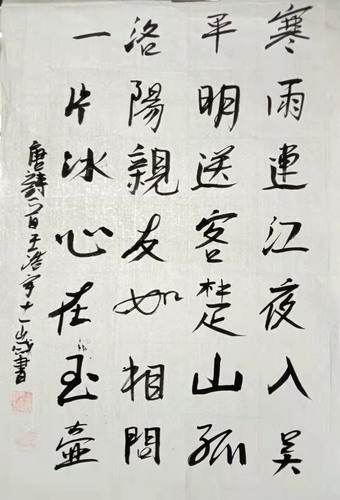 寒雨連江夜入吴
平明送客楚山孤
洛陽親友如相問
一片冰心在玉壺
唐詩一首王浩宇十一歲書